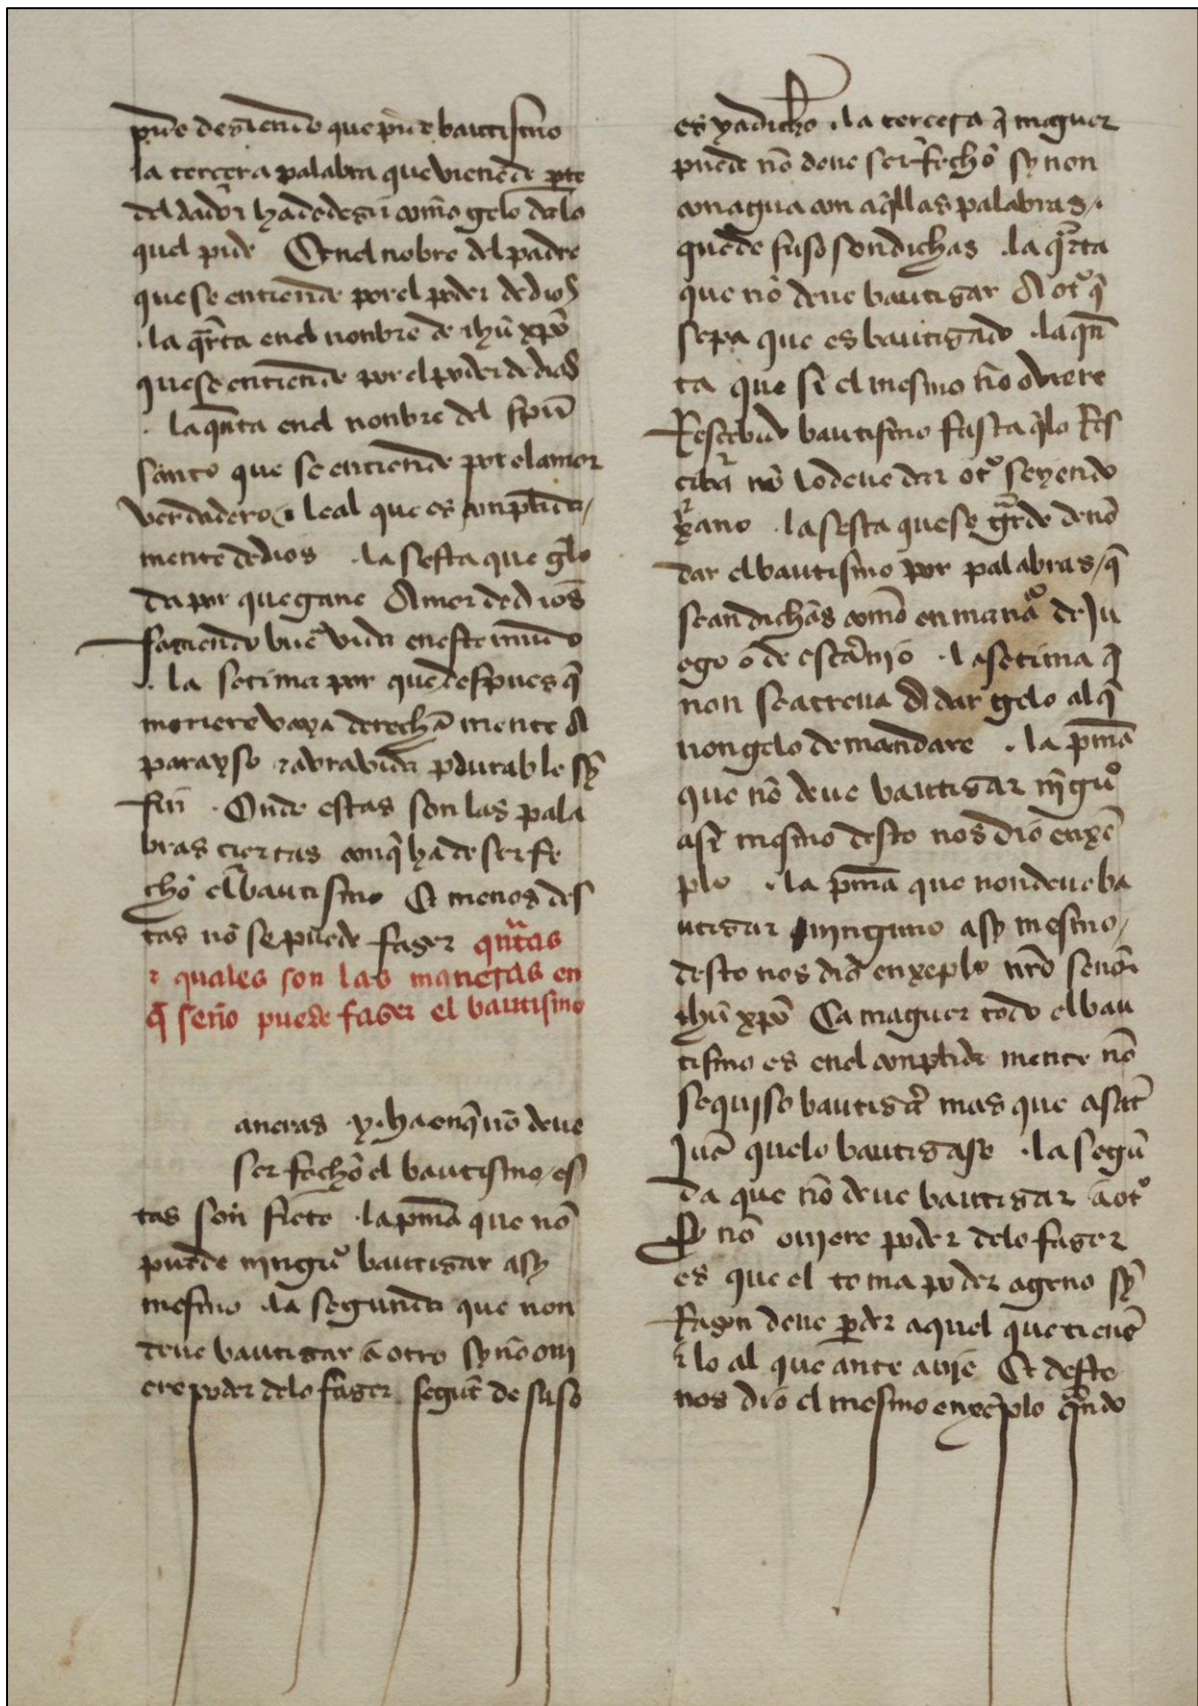 pide desiendo que pide bautismo
la tercera palabra que viene de pte
del dador ha de desir como gelo da lo
quel pide Et nel nobre del padre
que se entiende por el poder de dios
.la qrta enel nonbre de ihu xpo
que se entiende por el poder de dios
.la qnta enel nonbre del spu
santo que se entiende por el amor
verdadero leal que es conplida
mente de dios .la sesta que gelo
da por que gane Amor de dios
fasiendo bue vida en este mudo
.la setima por que despues q
moriere vaya derecha mente A
parayso abra vida pdurable sy
fin . Onde estas son las pala
bras ciertas conq ha de ser fe
cho el bautismo Et menos des
tas no se puede faser qntas
e quales son las maneras en
q se no puede faser el bautismo
aneras .y. ha enq no deve
ser fecho el bautismo es
tas son siete .la pma que no
puede ningu bautisar asy
mesmo .la segunda que non
deve bautisar a otro sy no oui
ere poder delo faser segut de suso
es ya dicho .la tercera q maguer
puede no deue ser fecho sy non
con agua con aqllas palabras.
que de suso son dichas .la qrta
que no deue bautisar A ot q
sepa que es bautisado .la qn
ta que si el mesmo no oviere
Rescebido bautismo fasta qlo Res
ciba no lo deue dar ot seyendo
xano .la sesta que se grde de no
dar el bautismo por palabras q
sean dichas como en mana de Ju
ego o de escarnio .la setima q
non se atreua A dar gelo al q
non gelo demandare .la pma
que no deue bautisar nigu
asi mismo desto nos dio enxe
plo .la pma que non deue ba
utisar ninguno asy mesmo
desto nos dio enxeplo nro senor
ihu xpo Ca maguer todo el bau
tismo es enel conplida mente no
se quiso bautisar mas que a sat
Jua quelo bautisase .la segu
da que no deue bautisar a ot
Sy no ouiere poder delo faser
es que el toma poder ageno sy
Rason deue pder aquel que tiene
e lo al que ante avie Et desto
nos dio el mesmo enxeplo qndo